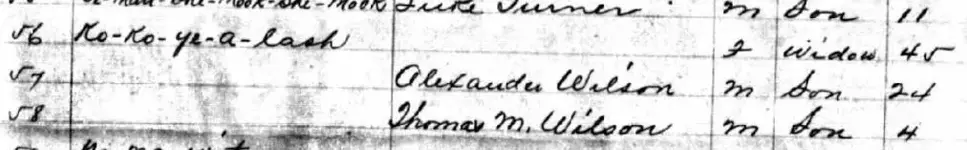 Luke Turner m Son 11
56 Ko-Ko-ye-a-lash f widow 45
57 Alexander Wilson m Son 24
58 Thomas M. Wilson m Son 4